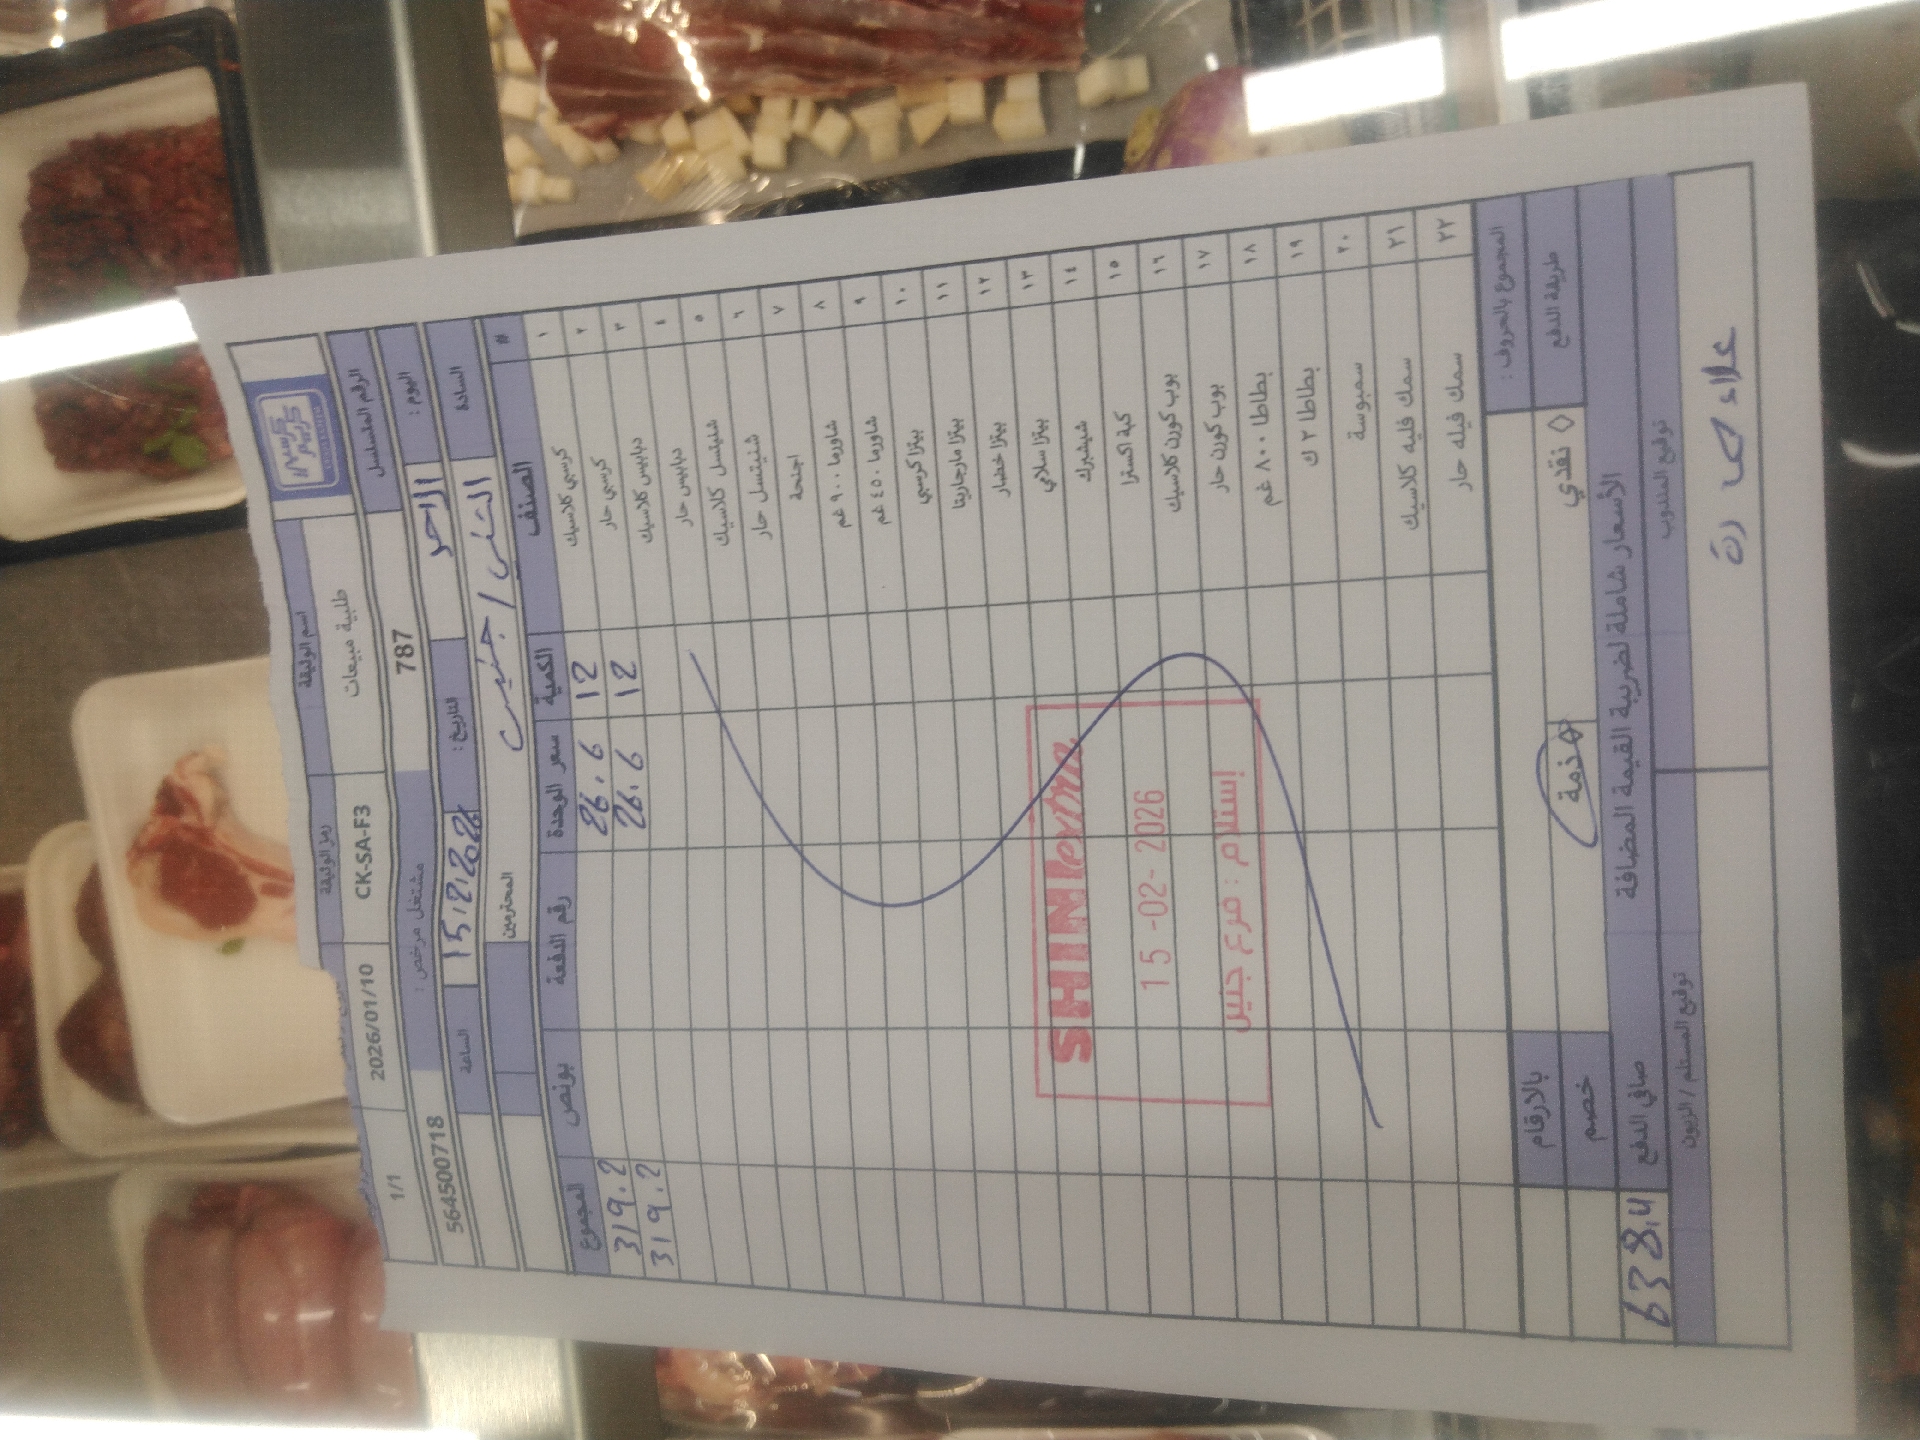 كرسبي كريسبي
اسم الوثيقة رمز الوثيقة
طلبية مبيعات CK-SA-F3 2026/01/10 1/1
الرقم المتسلسل 787 مشتغل مرخص : 564500718
اليوم : الاحد التاريخ : 15.2.2026 الساعة
السادة الشني / جنين المحترمين
# الصنف الكمية سعر الوحدة رقم الدفعة بونص المجموع
١ كرسبي كلاسيك 12 26.6 319.2
٢ كرسبي حار 12 26.6 319.2
٣ دبابيس كلاسيك
٤ دبابيس حار
٥ شنيتسل كلاسيك
٦ شنيتسل حار
٧ اجنحة
٨ شاورما ٩٠٠ غم
٩ شاورما ٤٥٠ غم
١٠ بيتزا كرسبي
١١ بيتزا مارجاريتا
١٢ بيتزا خضار
١٣ بيتزا سلامي
١٤ شيشبرك
١٥ كبة اكسترا
١٦ بوب كورن كلاسيك
١٧ بوب كورن حار
١٨ بطاطا ٨٠٠ غم
١٩ بطاطا ٢ ك
٢٠ سمبوسة
٢١ سمك فليه كلاسيك
٢٢ سمك فيله حار
SHINI extra
15-02-2026
إستلام : فرع جنين
المجموع بالحروف : بالارقام
طريقة الدفع ◇ نقدي ◇ ذمة خصم
الأسعار شاملة لضريبة القيمة المضافة صافي الدفع 638.4
توقيع المندوب توقيع المستلم / الزبون
علاء